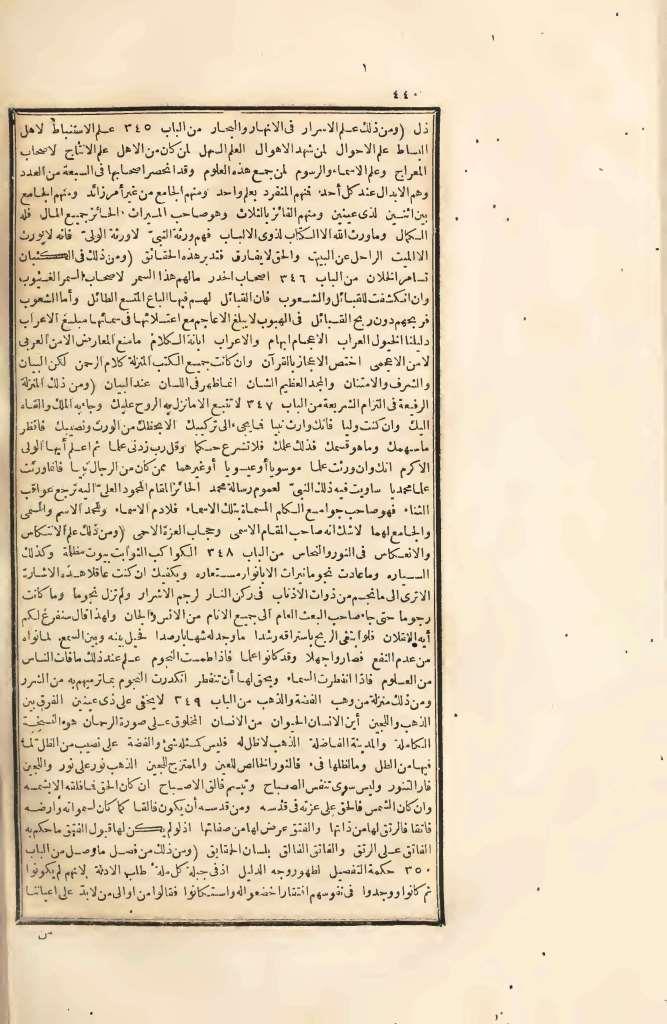 ٤٤٠
ذل (ومن ذلك علم الاسرار في الانهار والبحار من الباب ٣٤٥ علم الاستنباط لاهل
البساط علم الاحوال لمن شهد الاهوال العلم السهل لمن كان من الاهل علم الانتاج لاصحاب
المعراج وعلم الاسماء والرسوم لمن جمع هذه العلوم وقد انحصر اصحابها في السبعة من العدد
وهم الابدال عند كل أحد فنهم المنفرد بعلم واحد ومنهم الجامع من غير أمر زائد ومنهم الجامع
بين اثنين لذي عينين ومنهم الفائز بالثلاث وهو صاحب الميراث الحائز جميع المال فله
الكمال وما ورث الله الا الكتاب لذوي الالباب فهم ورثة النبي لا ورثة الولي فانه لا يورث
الا الميت الراحل عن البيت والحق لا يفارق فتدبر هذه الحقائق (ومن ذلك في الكثبان
تسامر الخلان من الباب ٣٤٦ اصحاب الخدر مالهم هذا السمر لاصحاب السمر الغيوب
وان انكشفت للقبائل والشعوب فان القبائل لهم فيها الباع المتسع الطائل وأما الشعوب
فريحهم دون ريح القبائل في الهبوب لا يبلغ الاعاجم مع اعتلائها في سمائها مبلغ الاعراب
دليلنا الخيول العراب الاعجام ابهام والاعراب ابانة الكلام ما منع المعارض الا من العربي
لا من الاعجمي اختص الاعجاز بالقرآن وان كانت جميع الكتب المنزلة كلام الرحمن لكن البيان
والشرف والامتنان والمجد العظيم الشان انما ظهر في اللسان عند البيان (ومن ذلك المنزلة
الرفيعة في التزام الشريعة من الباب ٣٤٧ لا تتبع الا ما نزل به الروح عليك وجاء به الملك والقاه
اليك وان كنت وليا فانك وارث نبيا فما يجيء الى تركيبك الا بحظك من الورث ونصيبك فانظر
ما سهمك وما هو قسمك فذلك علمك فلا تشرع حكما وقل رب زدني علما ثم اعلم أيها الولي
الاكرم انك وان ورثت علما موسويا أو عيسويا أو غيرهما ممن كان من الرجال نبيا فانما ورثت
علما محمديا ساويت فيه ذلك النبي لعموم رسالة محمد الحائز المقام المحمود العلي اليه ترجع عواقب
الثناء فهو صاحب جوامع الكلم المسماة بتلك الاسماء فلآدم الاسماء ولمحمد الاسم والمسمى
والجامع لهما لا شك انه صاحب المقام الاسمى وحجاب العزة الاحمى (ومن ذلك علم الانتكاس
والانعكاس في النور والنحاس من الباب ٣٤٨ الكواكب الثوابت بيوت مظلمة وكذلك
السياره وما عادت نجوما نيرات الا بانوار مستعاره ويكفيك ان كنت عاقلا هذه الاشارة
الا ترى الى ما نجم من ذوات الاذناب في ركن النار لرجم الاشرار ولم تزل نجوما وما كانت
رجوما حتى جاء صاحب البعث العام الى جميع الانام من الانس والجان ولهذا قال سنفرغ لكم
أيه الثقلان فلو ابتغى الريح باستراقه رشدا ما وجد له شهابا رصدا فحيل بينه وبين السمع لما نواه
من عدم النفع فصار وا جهلا وقد كانوا علما فاذا طمست النجوم علم عند ذلك ما فات الناس
من العلوم فاذا انفطرت السماء ويحق لها أن تنفطر انكدرت النجوم بما ترميهم به من الشرر
ومن ذلك منزلة من وهب الفضة والذهب من الباب ٣٤٩ لا يخفى على ذي عينين الفرق بين
الذهب واللجين أين الانسان الحيوان من الانسان المخلوق على صورة الرحمان هو النسخة
الكاملة والمدينة الفاضلة الذهب لا ظل له فليس كمثله شيء والفضة على نصيب من الظل لما
فيها من الطل وما لظلها فيء فالنور الخالص للعين والممتزج للجين الذهب نور على نور واللجين
فار التنور وليس سوى تنفس الصباح وتبسم فالق الاصباح ان كان الحق فما فلقه الا بشمسه
وان كان الشمس فالحق على عزته في قدسه ومن قدسه أن يكون فالقا كما كان لسمواته وأرضه
فاتقا فالرتق لها من ذاتها والفتق عرض لها من صفاتها اذ لو لم يكن لها قبول الفتق ما حكم به
الفاتق على الرتق والفاتق الفالق بلسان الحقايق (ومن ذلك من فصل ما وصل من الباب
٣٥٠ حكمة التفصيل اظهور وجه الدليل اذ في جبلة كل ملة طلب الادلة لانهم لم يكونوا
ثم كانوا ووجدوا في نفوسهم افتقارا خضعوا له واستكانوا فقالوا من اوالى من لا بد على اعياننا
من